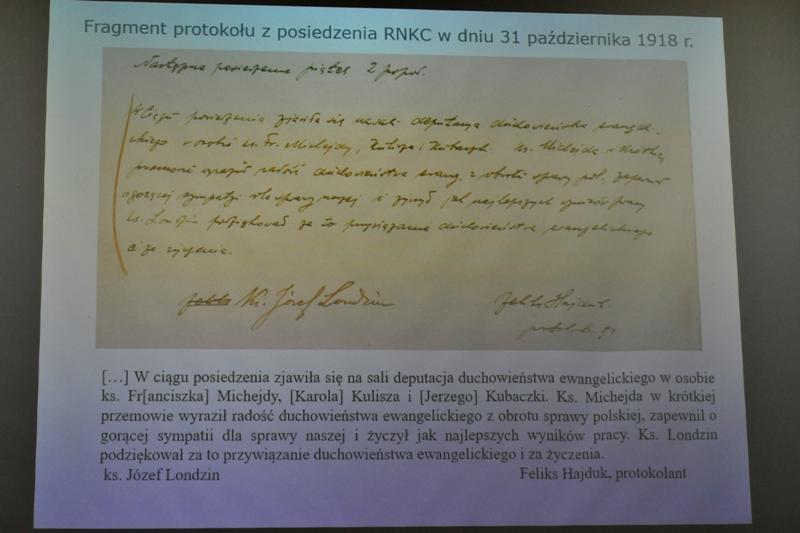 Fragment protokołu z posiedzenia RNKC w dniu 31 października 1918 r.
Następne posiedzenie piątek 2 popoł.
W Ciągu posiedzenia zjawiła się na sali deputacya duchowieństwa ewangel.
ickiego w osobie ks. Fr. Michejdy, Kulisza i Kubaczki. Ks. Michejda w krótkiej
przemowie wyraził radość duchowieństwa ewang. z obrotu sprawy pol., zapewnił
o gorącej sympatyi dla sprawy naszej i życzył jak najlepszych wyników pracy
ks. Londzin podziękował za to przywiązanie duchowieństwa ewangelickiego
i za życzenia.
Ks. Józef Londzin
Feliks Hajduk
[…] W ciągu posiedzenia zjawiła się na sali deputacja duchowieństwa ewangelickiego w osobie
ks. Fr[anciszka] Michejdy, [Karola] Kulisza i [Jerzego] Kubaczki. Ks. Michejda w krótkiej
przemowie wyraził radość duchowieństwa ewangelickiego z obrotu sprawy polskiej, zapewnił o
gorącej sympatii dla sprawy naszej i życzył jak najlepszych wyników pracy. Ks. Londzin
podziękował za to przywiązanie duchowieństwa ewangelickiego i za życzenia.
ks. Józef Londzin
Feliks Hajduk, protokolant